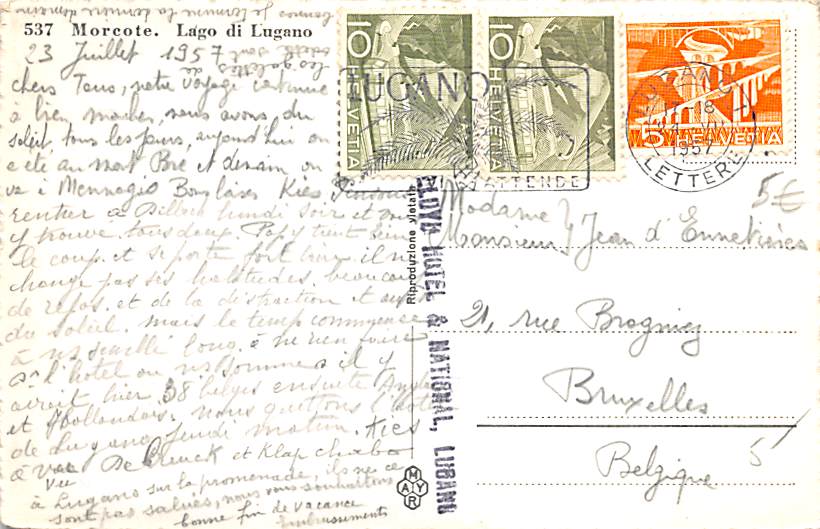 537 Morcote. Lago di Lugano
23 Juillet 1957
chers Tous, notre voyage continue
à bien marcher, nous avons du
soleil, tous les jours, aujourd'hui on
a été au mont Bré et demain, on
va à Mennagio
rentrer à lundi soir et
y trouve. tous deux. Papy tient bien
le coup. et se porte fort bien il n
change pas ses habitudes. beaucoup
de repos. et de la distraction et aussi
du Soleil. mais le temps commence
à me sembler long. à ne rien faire
à l'hotel où nous sommes il y
avait hier 38 belges ensuite Anglais
et Hollandais, nous quittons l'hotel
de Lugano Jeudi matin. Kies
a vu De Creuck et Klap
à Lugano sur la promenade, ils ne se
sont pas salués, nous vous souhaitons
bonne fin de vacance
Embrassements
10 HELVETIA
10 HELVETIA
5 HELVETIA
LUGANO
ATTENDE
LUGANO
18
1957
LETTERE
5€
Riproduzione vietata
LLOYD HOTEL & NATIONAL, LUGANO
Madame &
Monsieur Jean d'Ennetières
21, rue Brogniez
Bruxelles
Belgique
5
MAYR